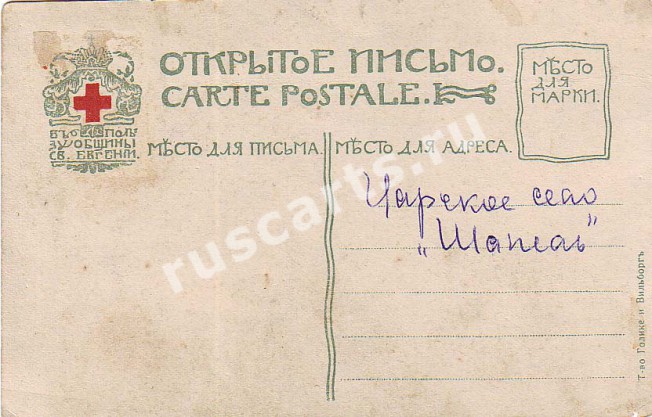 ОТКРЫТОЕ ПИСЬМО.
CARTE POSTALE.
МѢСТО
ДЛЯ
МАРКИ.
ВЪ ПОЛЬ
ЗУ ОБЩИНЫ
СВ. ЕВГЕНІИ.
МѢСТО ДЛЯ ПИСЬМА.
МѢСТО ДЛЯ АДРЕСА.
Царское село
„Шапель"
Т-во Голике и Вильборгъ
ruscarts.ru